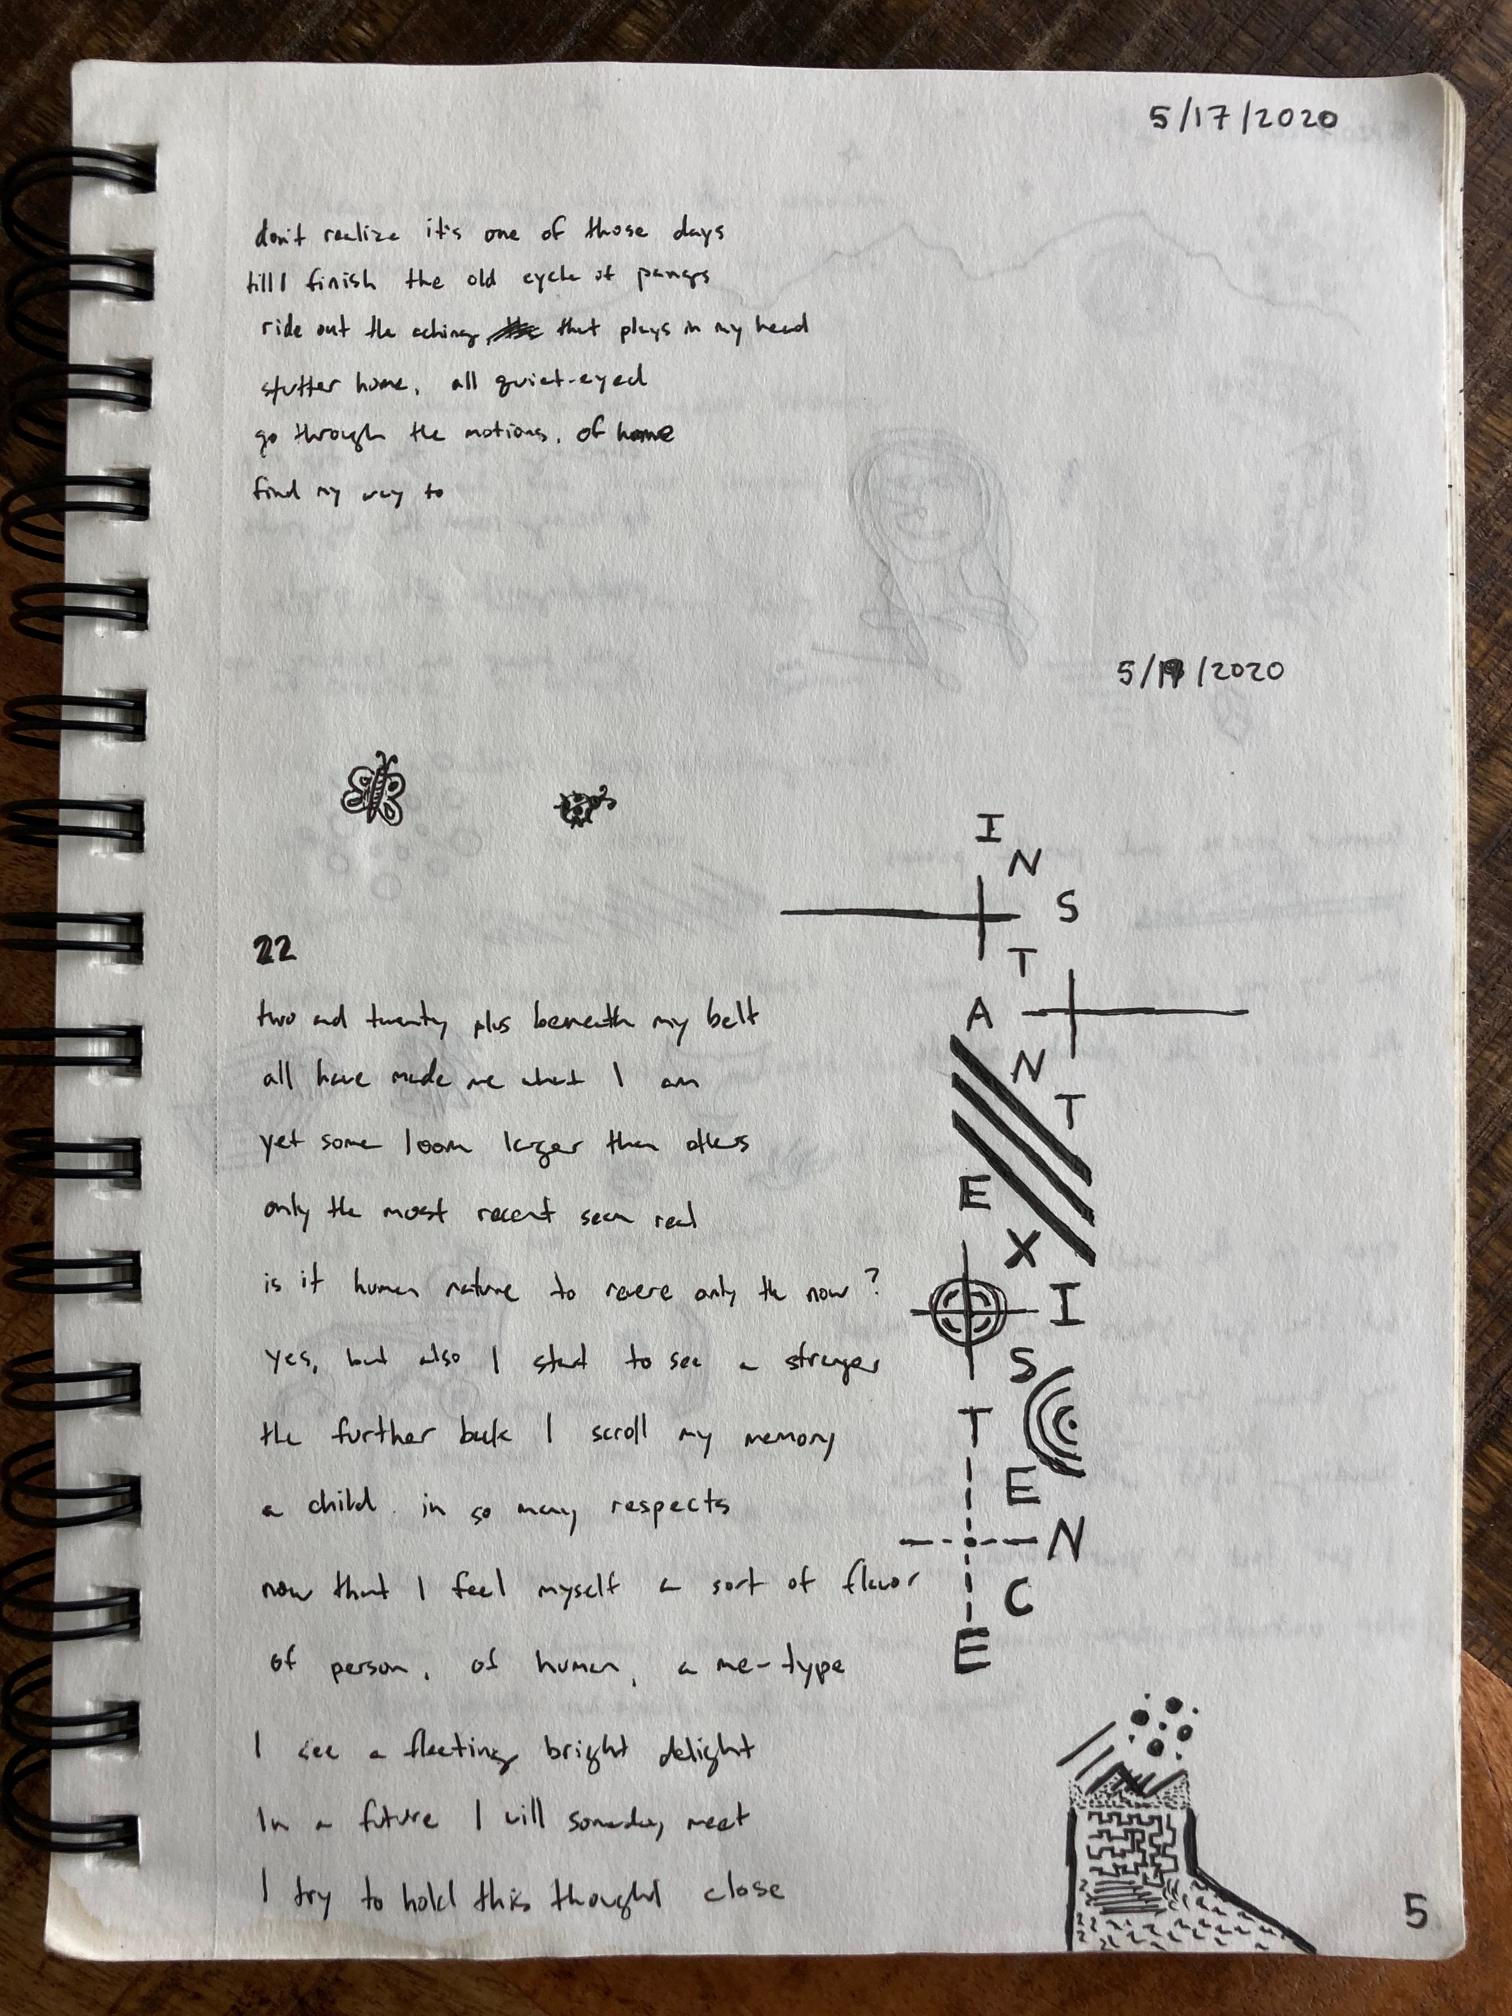 5/17/2020
don't realize it's one of those days
till I finish the old cycle of pangs
ride out the aching that plays in my head
stutter home, all quiet-eyed
go through the motions, of home
find my way to
5/19/2020
INSTANT
EXISTENCE
22
two and twenty plus beneath my belt
all have made me what I am
yet some loom larger than others
only the most recent seem real
is it human nature to revere only the now?
yes, but also I start to see a stranger
the further back I scroll my memory
a child in so many respects
now that I feel myself a sort of flavor
of person, of human, a me-type
I see a fleeting bright delight
In a future I will someday meet
I try to hold this thought close
5